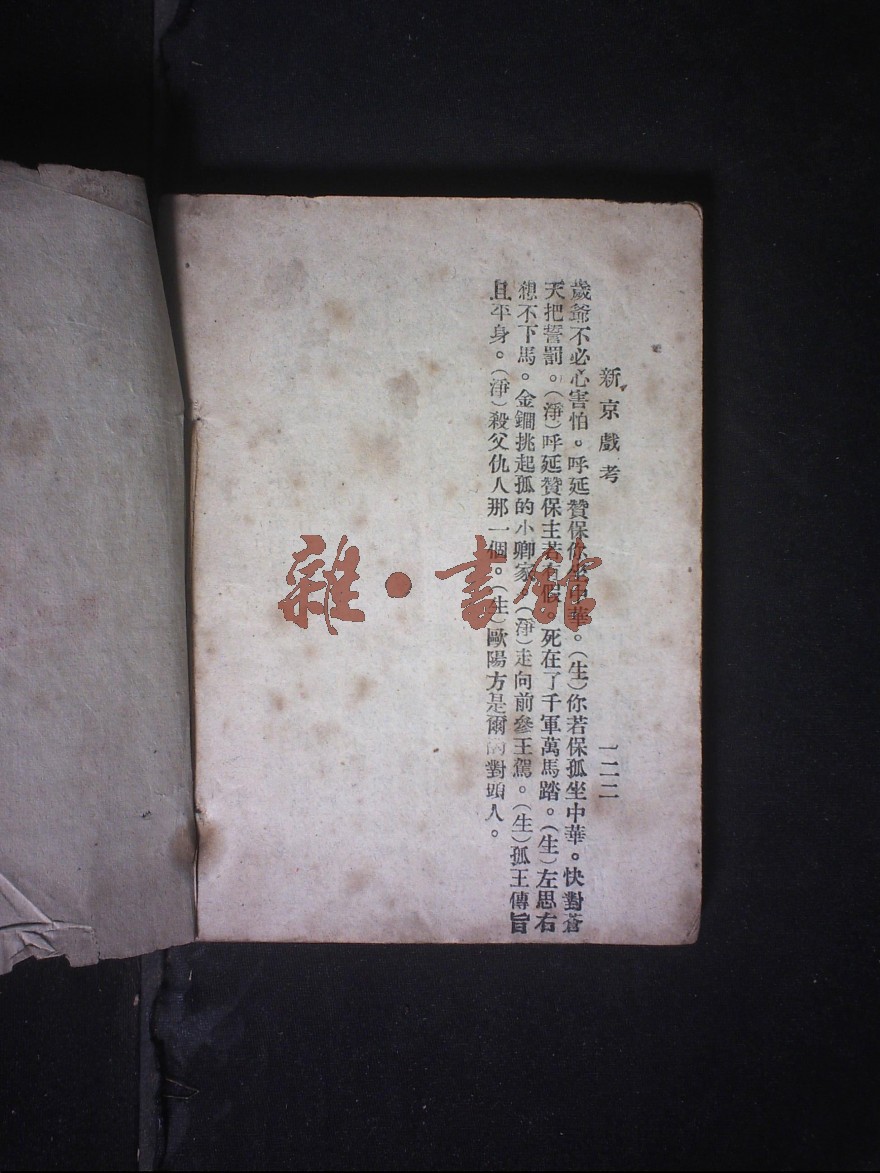 新京戲考
一二二
歲爺不必心害怕。呼延贊保你坐中華。(生)你若保孤坐中華。快對蒼
天把誓罰。(淨)呼延贊保主若有假。死在了千軍萬馬踏。(生)左思右
想不下馬。金鐧挑起孤的小卿家。(淨)走向前參王駕。(生)孤王傳旨
且平身。(淨)殺父仇人那一個。(生)歐陽方是爾的對頭人。
雜·書館